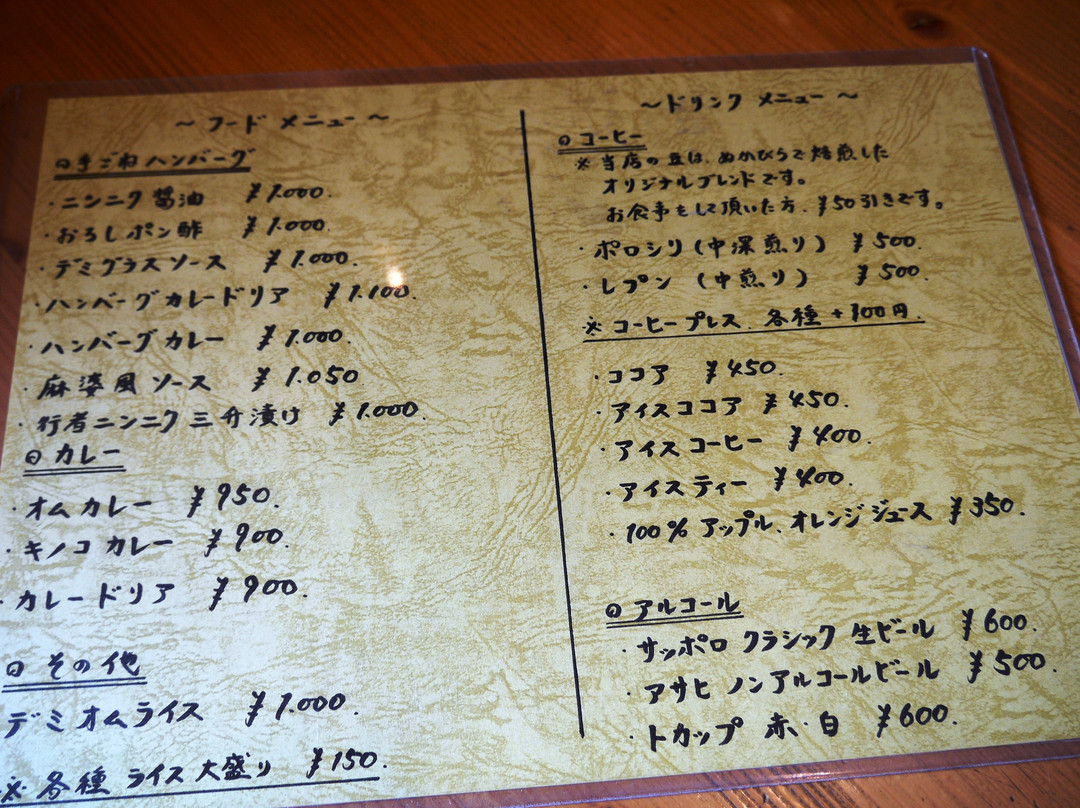 ～フード メニュー～
◎手ごねハンバーグ
・ニンニク醤油 ¥1.000.
・おろしポン酢 ¥1.000.
・デミグラスソース ¥1.000.
・ハンバーグカレードリア ¥1.100.
・ハンバーグカレー ¥1.000.
・麻婆風ソース ¥1.050
・行者ニンニク三升漬け ¥1.000.
◎カレー
・オムカレー ¥950.
・キノコカレー ¥900.
・カレードリア ¥900.
◎その他
デミオムライス ¥1.000.
※各種ライス大盛り ¥150.
～ドリンク メニュー～
◎コーヒー
※当店の豆は、ぬかびらで焙煎した
オリジナルブレンドです。
お食事をして頂いた方、¥50引きです。
・ポロシリ(中深煎り) ¥500.
・レプン(中煎り) ¥500.
※コーヒープレス、各種+100円.
・ココア ¥450.
・アイスココア ¥450.
・アイスコーヒー ¥400.
・アイスティー ¥400.
・100%アップル、オレンジジュース ¥350.
◎アルコール
・サッポロ クラシック 生ビール ¥600.
・アサヒ ノンアルコールビール ¥500.
・トカップ 赤・白 ¥600.